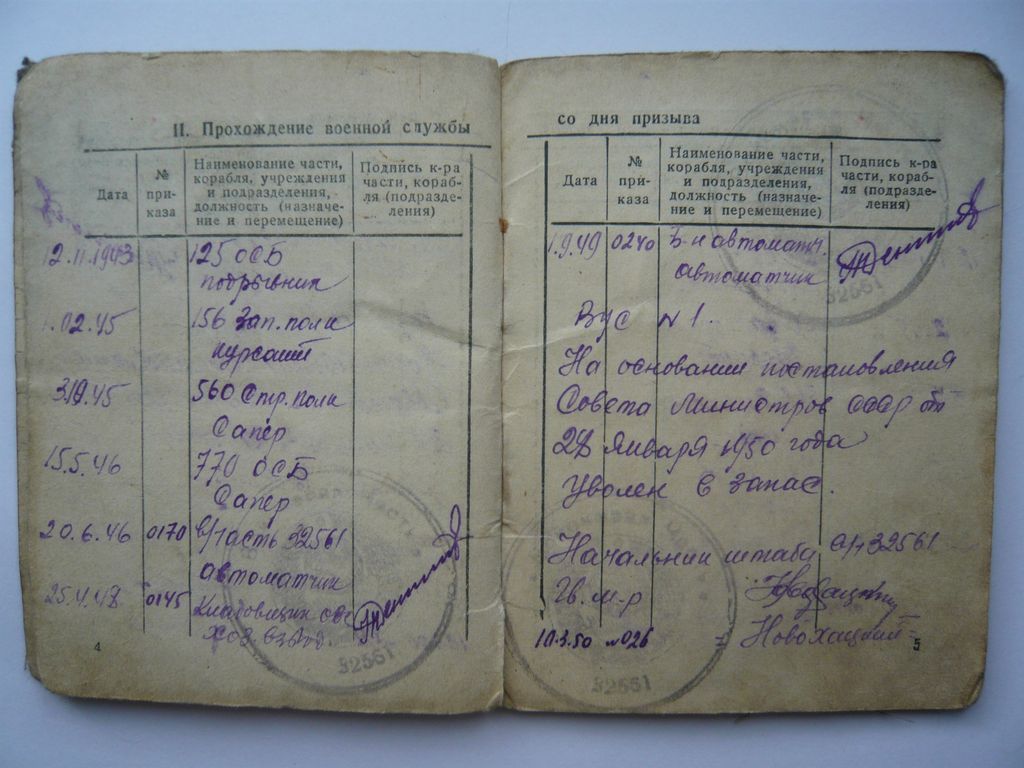 II. Прохождение военной службы
Дата
№ приказа
Наименование части,
корабля, учреждения
и подразделения,
должность (назначе-
ние и перемещение)
Подпись к-ра
части, кораб-
ля (подразде-
ления)
12.11.1943 125 ОСБ
подрывник
.02.45 156 Зап. полк
курсант
45 560 Стр. полк
Сапёр
15.5.46 770 ОСБ
Сапер
20.6.46 0170 в/часть 32561
автоматчик
25.4.48 0145 Кладовщик
хоз. взвод.
32561
4
со дня призыва
Дата
№
при-
каза
Наименование части,
корабля, учреждения
и подразделения,
должность (назначе-
ние и перемещение)
Подпись к-ра
части, кораб-
ля (подразде-
ления)
1.9.49 0240 Б-н автоматч.
автоматчик
32561
Вус № 1.
На основании постановления
Совета Министров СССР от
января 1950 года
Уволен в запас.
Начальник штаба в/ч 32561
Гв. м-р
10.3.50 №026 Новохацкий
32561
5